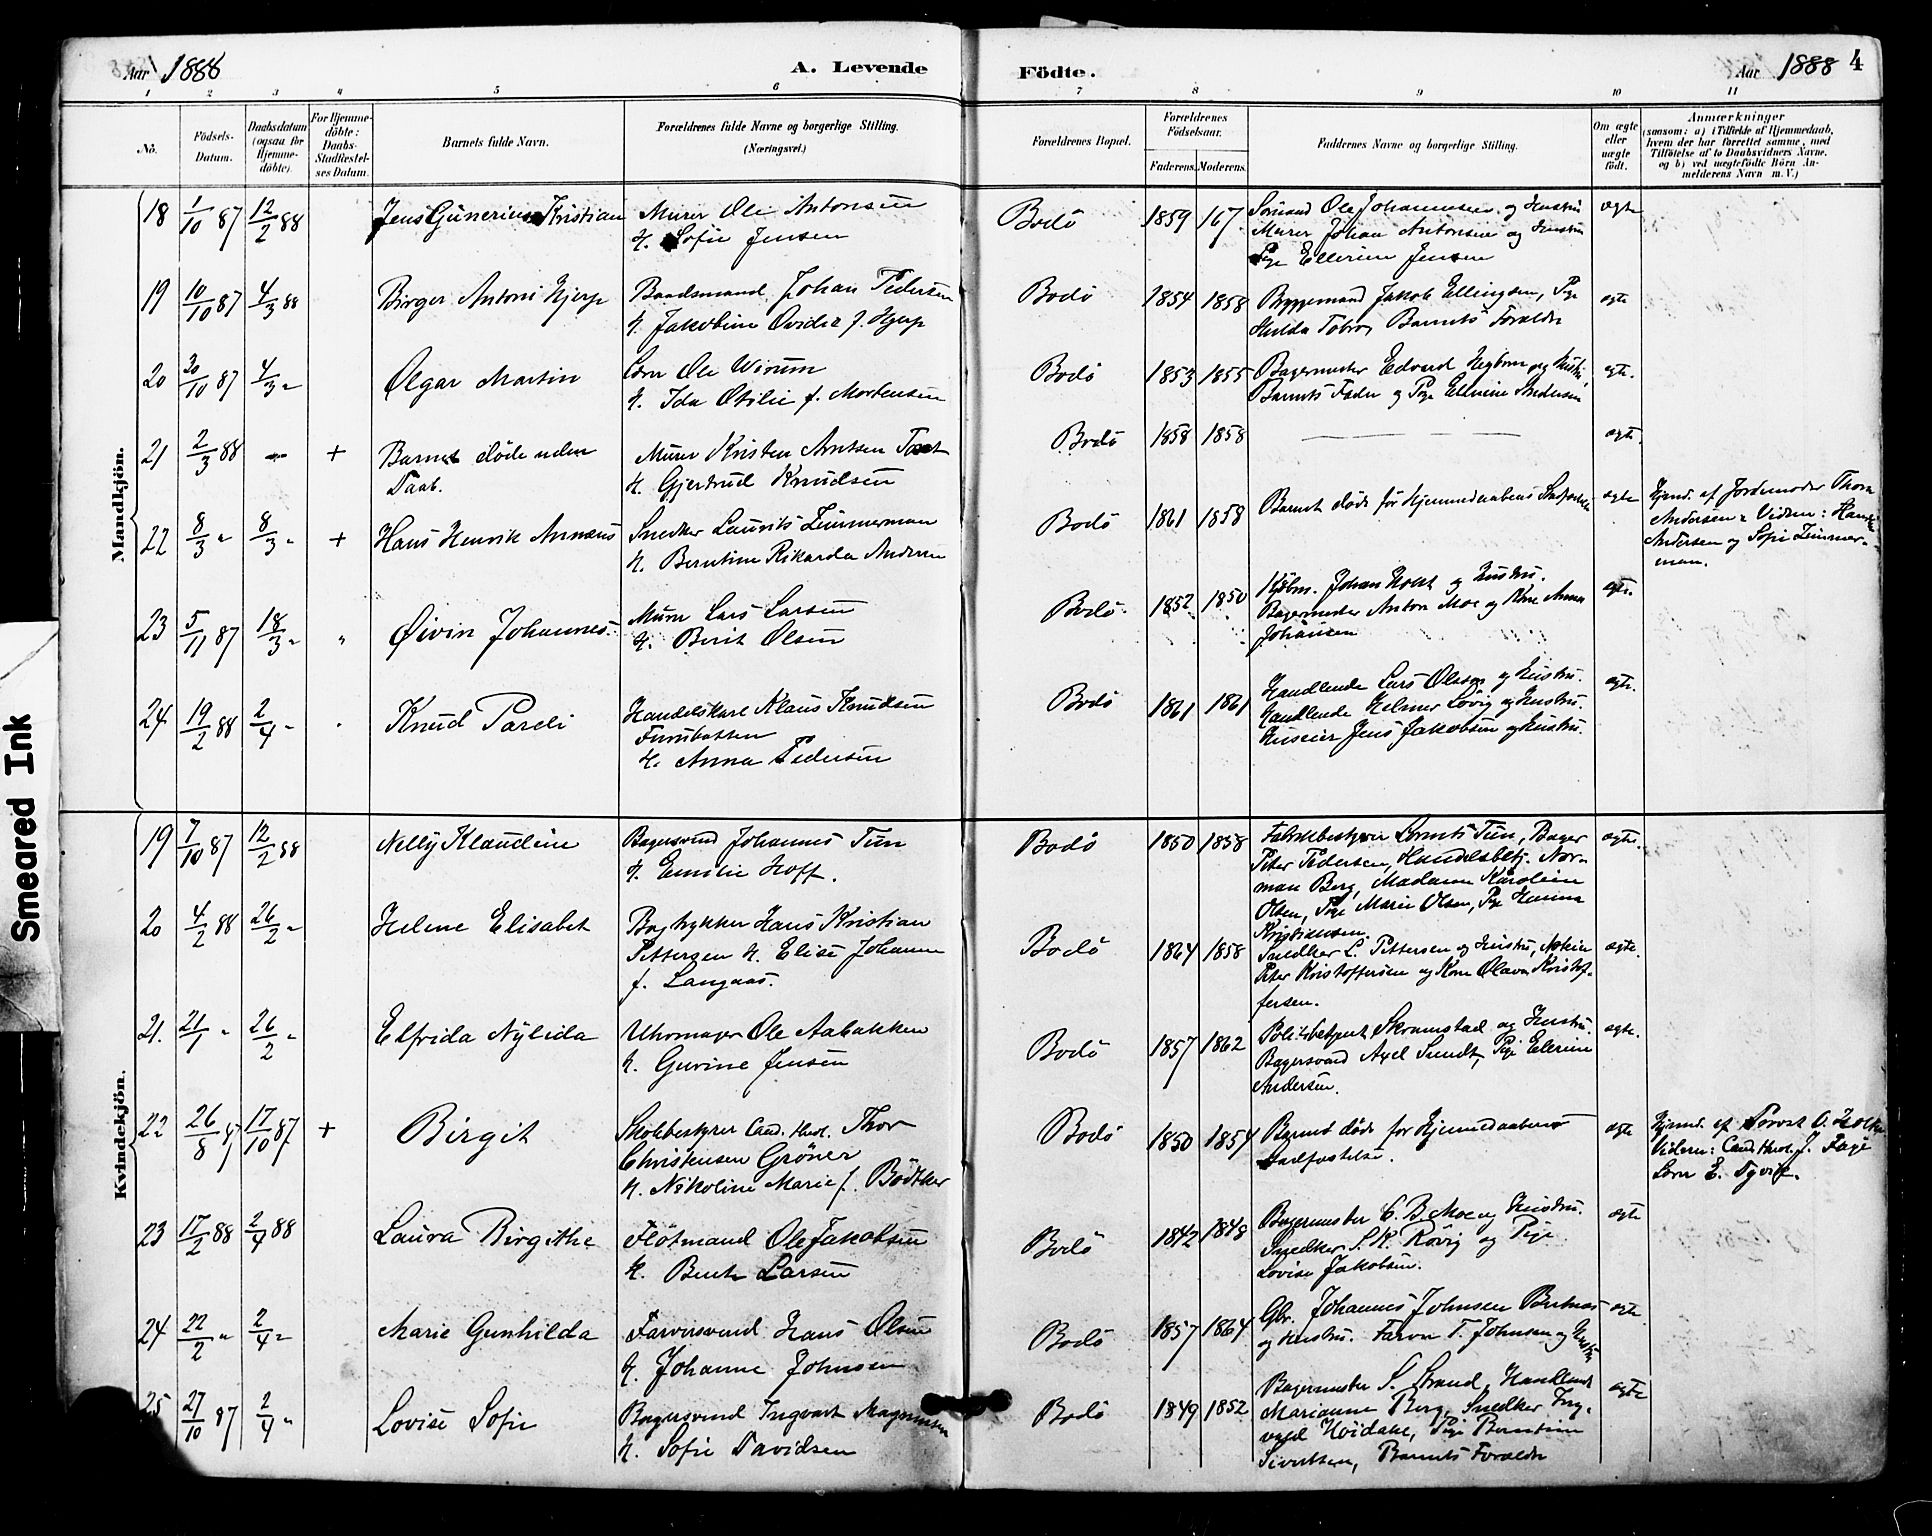 Aar 1888
A. Levende
Födte.
Aar 1888 4
1 2 3 4 5 6 7 8 9 10 11
No.
Födsels-
Datum.
Daabsdatum
(ogsaa for
Hjemme-
döbte).
For Hjemme-
döbte:
Daabs-
Stadfæstel-
ses Datum.
Barnets fulde Navn.
Forældrenes fulde Navne og borgerlige Stilling.
(Næringsvei.)
Forældrenes Bopæl.
Forældrenes
Födselsaar.
Faderens. Moderens.
Faddernes Navne og borgerlige Stilling.
Om ægte
eller
uægte
födt.
Anmærkninger
(saasom: a) i Tilfælde af Hjemmedaab,
hvem der har forrettet samme, med
Tilföielse af to Daabsvidners Navne,
og b) ved uægtefödte Börn An-
melderens Navn m. V.)
Mandkjön.
18 1/10 87 12/2 88 Jens Gunerius Kristian
Murer Ole Antonsen
H. Sofie Jensen
Bodö 1859 167
Ole Johannesen og Hustru
Murer Johan Antonsen og Hustru
Pige Ellerine Jensen
ægte
19 10/10 87 4/3 88 Birger Antoni Hjerp
Baadsmand Johan Pedersen
H. Jakobine Ovidia f. Hjerp
Bodö 1854 1858
Byggemand Jakob Ellingsen, Pige
Hulda Tobro, Barnets Forældre
ægte
20 30/10 87 4/3 " Olgar Martin
Lærer Ole Wirum
H. Ida Otilie f. Mortensen
Bodö 1853 1855
Bagermester Edvard og Hustru,
Barnets Fader og Pige Ellerine Andersen
ægte.
21 2/3 88 — + Barnet döde uden
Daab.
Murer Kristen Arntsen
H. Gjertrud Knudsen
Bodö 1858 1858 — ægte.
22 8/3 " 8/3 " + Hans Henrik Annæus
Snedker Laurits Zimmerman
H. Berntine Rikarda Andersen
Bodö 1861 1858
Barnet döde för Hjemmedaabens
ægte
Hjemd. af Jordemoder Thora
Andersen. Vidner: Hans
Andersen og Sofie Zimmer-
man.
23 5/11 87 18/3 " " Øivin Johannes.
Murer Lars Larsen
H. Berit Olsen
Bodö. 1852 1850
Kjöbm. Johan Holst og Hustru.
Bagermester Anton Moe og Kone Anna
Johansen
ægte.
24 19/2 88 2/4 " Knud Pareli
Handelskarl Klaus Knudsen
Furubotten
H. Anna Pedersen
Bodö 1861 1861
Handlende Lars Olsen og Hustru.
Handlende Helmer Lövig og Hustru.
Huseier Jens Jakobsen og Hustru.
ægte.
Kvindekjön.
19 7/10 87 12/2 88 Nelly Klaudine
Bagersvend Johannes Tun
H. Emilie Hoff.
Bodö 1850 1858
Fabrikbestyrer Lornts Tun, Bager
Peter Pedersen, Handelsbetj. Nor-
man Berg, Madame Karoline
Olsen, Pige Marie Olsen, Pige Hanna
Kristiansen
ægte.
20 4/2 88 26/2 " Helene Elisabet
Bogtrykker Hans Kristian
Pettersen H. Elise Johanne
f. Langaas.
Bodö 1864 1858
Snedker L. Pettersen og Hustru,
Peter Kristoffersen og Kone Olava Kristof-
fersen.
ægte.
21. 21/1 " 26/2 " Elfrida Nylida
Uhrmager Ole Aabakken
H. Gurine Jensen
Bodö 1857 1862
Politibetjent Skramstad og Hustru.
Bagersvend Axel Sundt, Pige Ellerine
Andersen.
ægte.
22 26/8 87 17/10 87 + Birgit
Skolebestyrer Cand. theol. Thor
Christensen Gröner
H. Nikoline Marie f. Bödtker
Bodö 1850 1854
Barnet döde för Hjemmedaabens
Stadfæstelse.
ægte
Hjemd. af Provst O. Holm
Vidner: Cand. theol. J. Faye
Lærer E. Tyvik.
23 17/2 88 2/4 88 Laura Birgithe
Flötmand Ole Jakobsen
H. Berit Larsen
Bodö 1842 1848
Bagermester C. B. Moe og Hustru.
Snedker S. K. Rövig og Pige
Lovise Jakobsen.
ægte
24 22/2 " 2/4 " Marie Gunhilda
Farversvend Hans Olsen
H. Johanne Johnsen
Bodö 1857 1864
Gbr. Johannes Johnsen
og Hustru. Farver T. Johnsen og Hustru
ægte.
25 27/10 87 2/4 " Lovise Sofie
Bagersvend Ingvart Magnussen
H. Sofie Davidsen
Bodö 1849 1852
Bagermester S. Strand, Handlende
Marianne Berg, Snedker Ing-
vald Höidahl, Pige Berntine
Sivertsen, Barnets Forældre
ægte
Smeared Ink